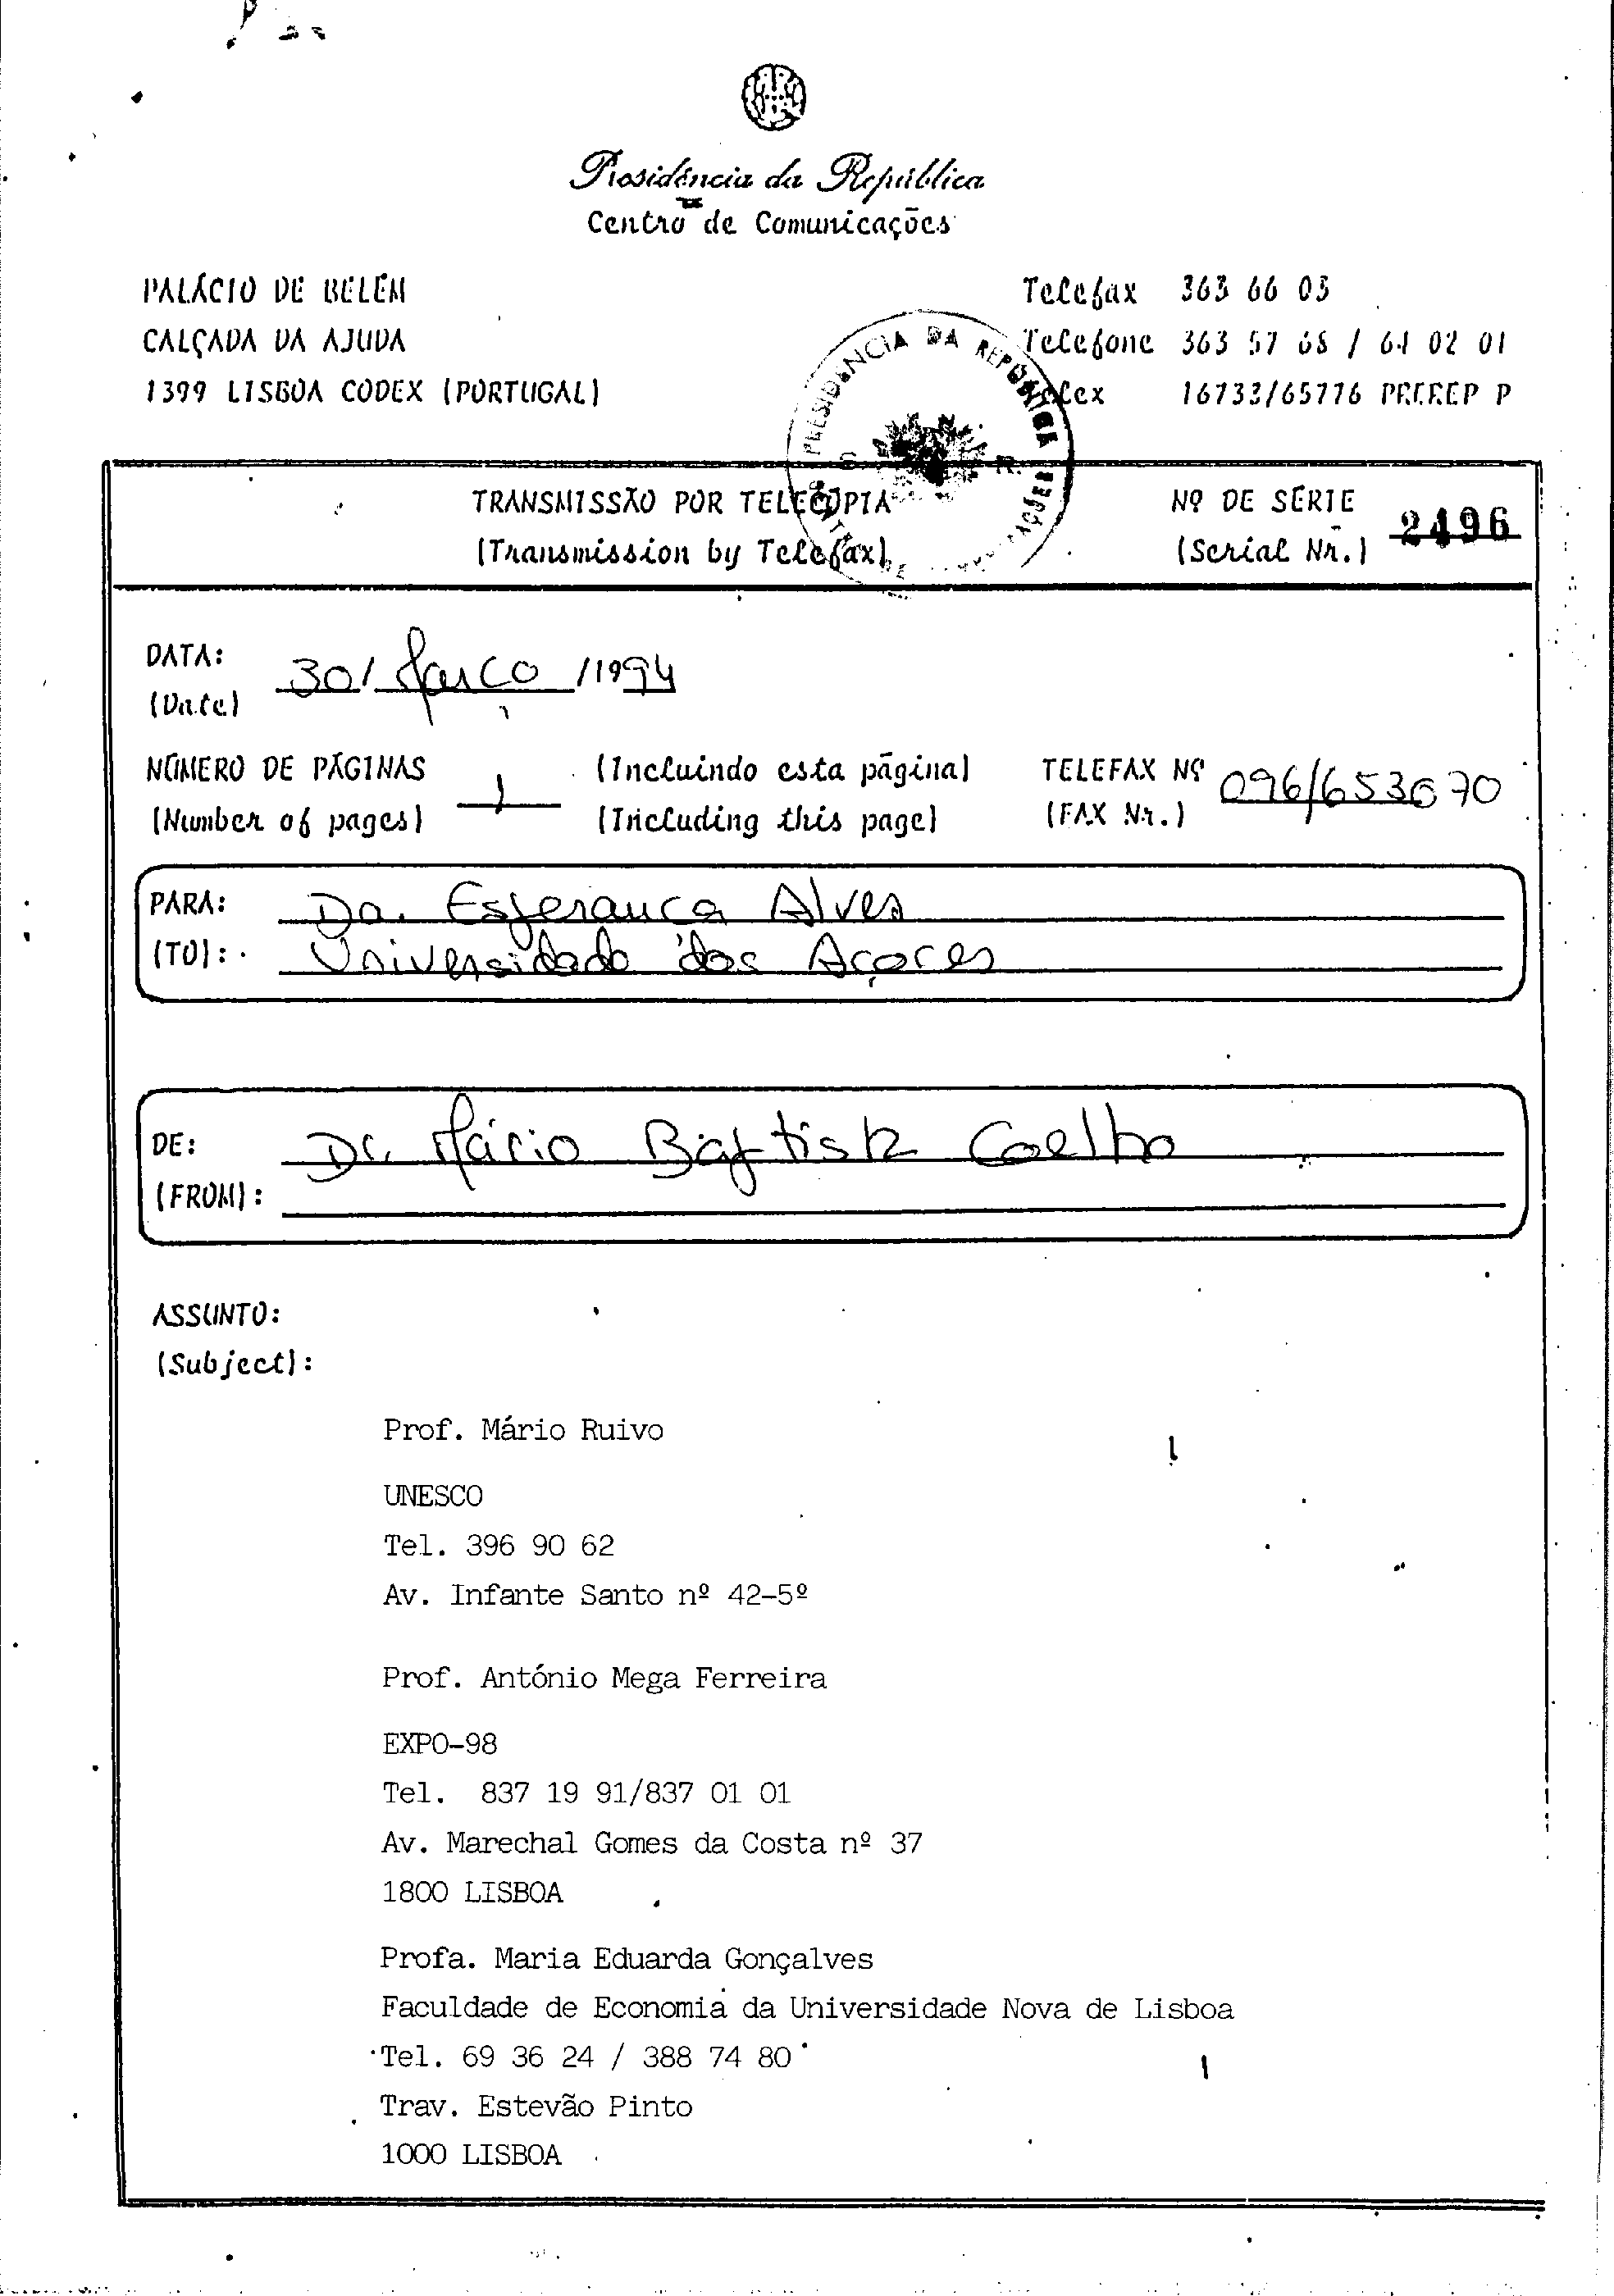 Presidência da República
Centro de Comunicações
PALÁCIO DE BELÉM
CALÇADA DA AJUDA
1399 LISBOA CODEX (PORTUGAL)
Telefax 363 66 03
Telefone 363 57 68 / 64 02 01
Telex 16733/65776 PREREP P
PRESIDÊNCIA DA REPÚBLICA
TRANSMISSÃO POR TELECÓPIA
(Transmission by Telefax)
Nº DE SÉRIE
(Serial Nr.)
2496
DATA:
(Date)
30/ Março /1994
NÚMERO DE PÁGINAS
(Number of pages)
1
(Incluindo esta página)
(Including this page)
TELEFAX Nº
(FAX Nr.)
096/653670
PARA: Da. Esperança Alves
(TO): Universidade dos Açores
DE: Dr. Mário Baptista Coelho
(FROM):
ASSUNTO:
(Subject):
Prof. Mário Ruivo
UNESCO
Tel. 396 90 62
Av. Infante Santo nº 42-5º
Prof. António Mega Ferreira
EXPO-98
Tel. 837 19 91/837 01 01
Av. Marechal Gomes da Costa nº 37
1800 LISBOA
Profa. Maria Eduarda Gonçalves
Faculdade de Economia da Universidade Nova de Lisboa
Tel. 69 36 24 / 388 74 80
Trav. Estevão Pinto
1000 LISBOA